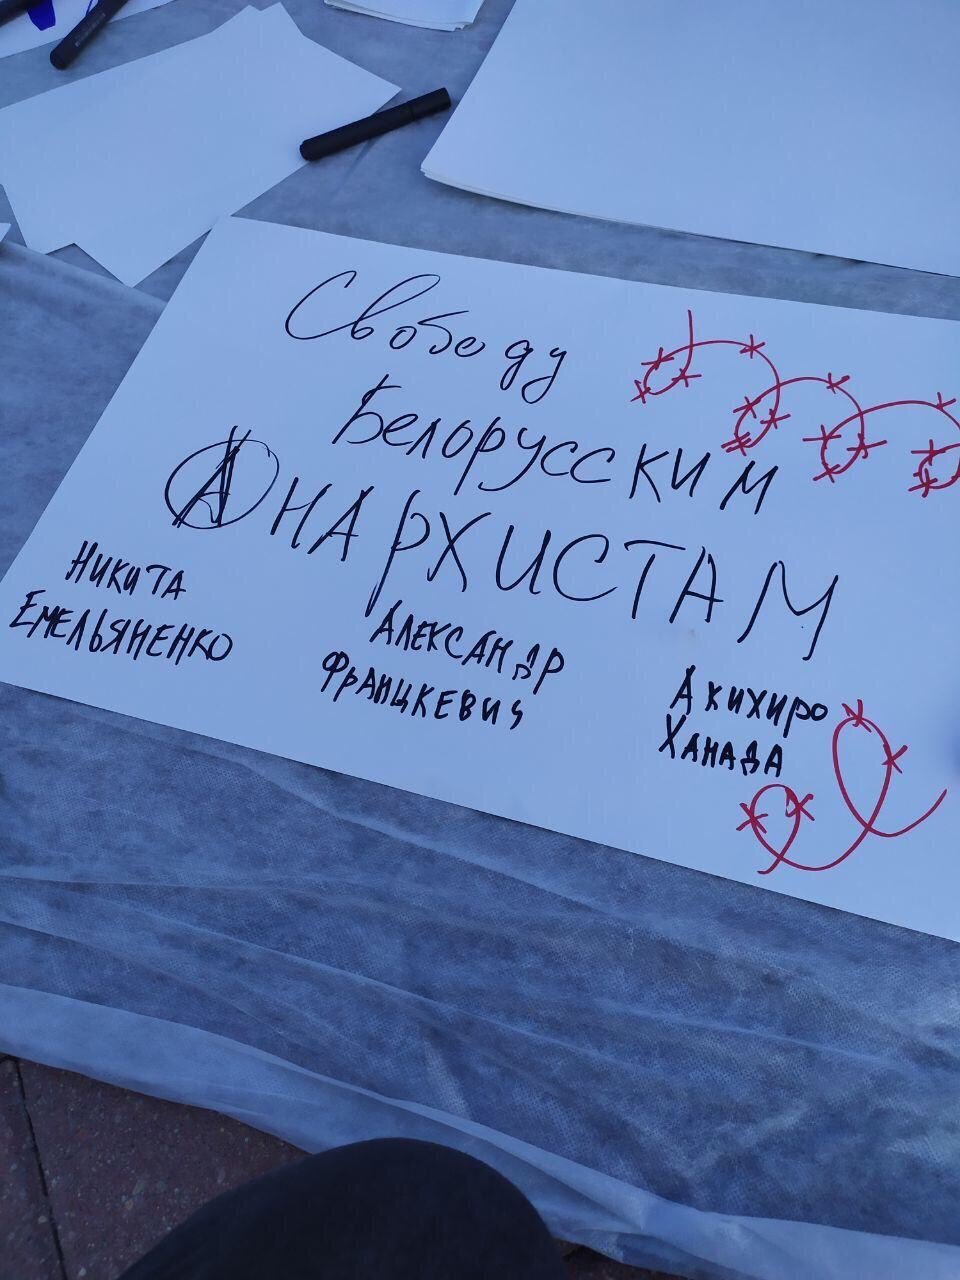 Свободу
Белорусским
Анархистам
Никита
Емельяненко
Александр
Францкевич
Акихиро
Ханада